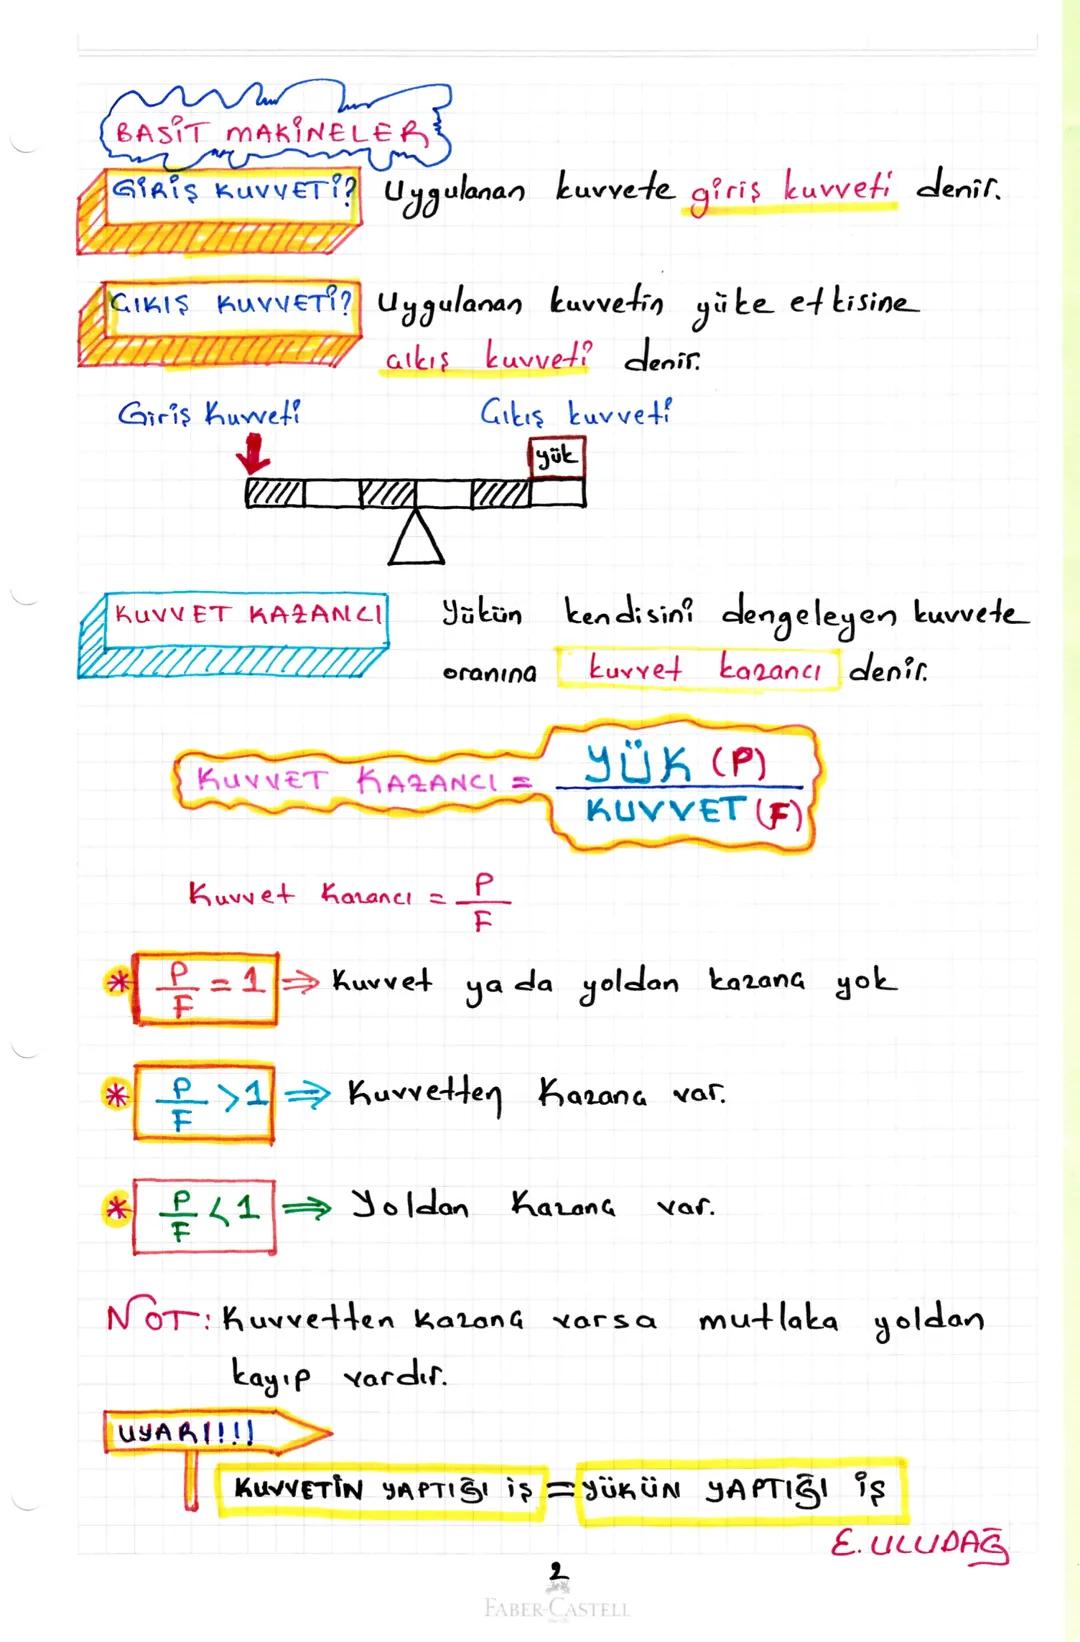 BASİT MAKİNELER
GİRİŞ KUVVETİ? Uygulanan kuvvete giriş kuvveti denir.
ÇIKIŞ KUVVETİ? Uygulanan kuvvetin yüke etkisine
çıkış kuvveti denir.
Giriş Kuvveti Çıkış kuvveti
yük
KUVVET KAZANCI Yükün kendisini dengeleyen kuvvete
oranına kuvvet kazancı denir.
KUVVET KAZANCI = YÜK (P)
KUVVET (F)
Kuvvet Kazancı = P
F
* P/F = 1 ⇒ Kuvvet ya da yoldan kazanç yok
* P/F > 1 ⇒ Kuvvetten Kazanç var.
* P/F < 1 ⇒ Yoldan Kazanç var.
NOT: Kuvvetten kazanç varsa mutlaka yoldan
kayıp vardır.
UYARI!!!
KUVVETİN YAPTIĞI İŞ = YÜKÜN YAPTIĞI İŞ
E. ULUDAĞ
2
FABER-CASTELL